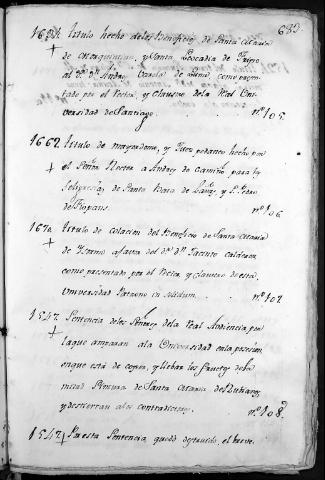 683
1634 titulo hecho deles Beneficios de Santa Maria
de y Santa Leocadia de
al Dr. Dn. Andres Varela de como presen-
tado por el Rector, y Claustro de la Real Uni-
versidad de Santiago. nº 105
1662 titulo de mayordomo, y Juez pedaneo hecho por
el Señor Rector a Andres de para las
feligresias de Santa Mara de y Sn. Pedro
de nº 106
167a titulo de colacion del Beneficio de Santa Maria
de afavor del Dr. Dn. Jacinto calderon
como presentado por el Rector, y claustro de esta
Universidad Patrono in solidum. nº 107
1547 Sentencia delos Señores dela Real Audiencia por
laque amparan ala Universidad enla posesion
enque está de coger, y llebar los frutos dela
mitad de Santa Maria de
y destierran alos contradictores. nº 108
1547 Puesta Sentencia quedó el breve